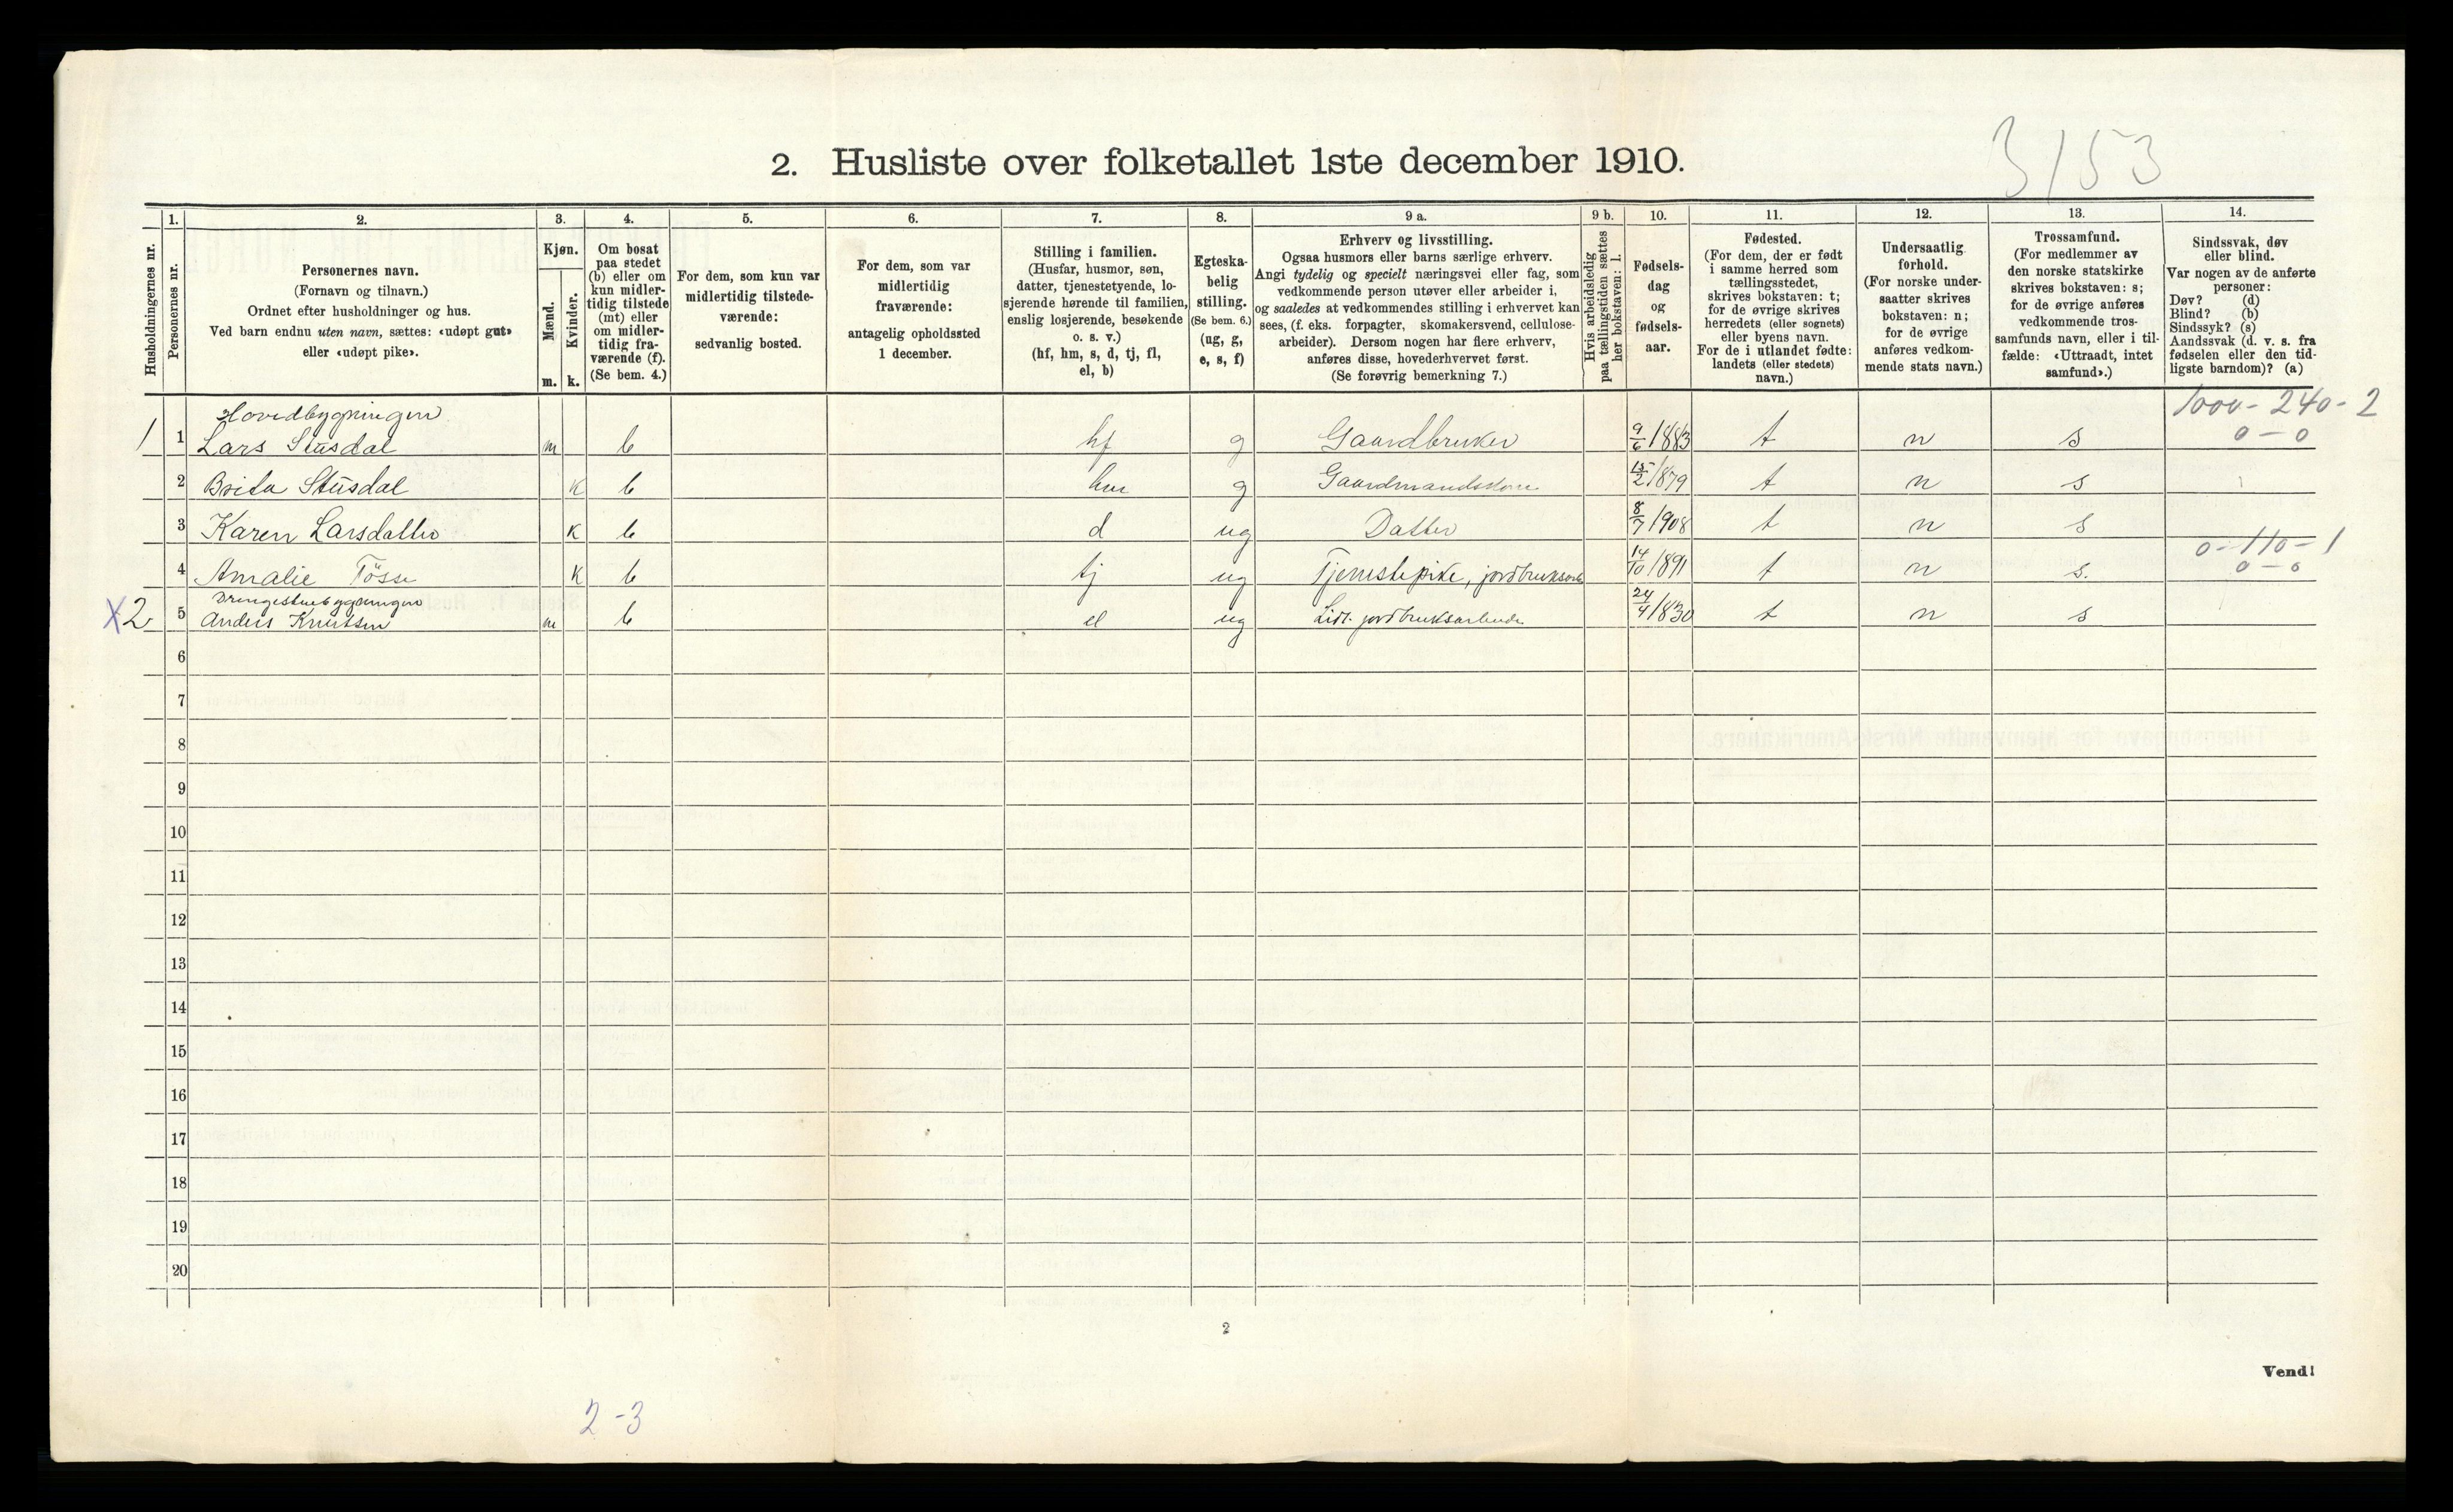 3153
2. Husliste over folketallet 1ste december 1910.
Husholdningernes nr.
1.
Personernes nr.
2.
Personernes navn.
(Fornavn og tilnavn.)
Ordnet efter husholdninger og hus.
Ved barn endnu uten navn, sættes: «udøpt gut»
eller «udøpt pike».
3.
Kjøn.
Mænd.
m.
Kvinder.
k.
4.
Om bosat
paa stedet
(b) eller om
kun midler-
tidig tilstede
(mt) eller
om midler-
tidig fra-
værende (f).
(Se bem. 4.)
5.
For dem, som kun var
midlertidig tilstede-
værende:
sedvanlig bosted.
6.
For dem, som var
midlertidig
fraværende:
antagelig opholdssted
1 december.
7.
Stilling i familien.
(Husfar, husmor, søn,
datter, tjenestetyende, lo-
sjerende hørende til familien,
enslig losjerende, besøkende
o. s. v.)
(hf, hm, s, d, tj, fl,
el, b)
8.
Egteska-
belig
stilling.
(Se bem. 6.)
(ug, g,
e, s, f)
9 a.
Erhverv og livsstilling.
Ogsaa husmors eller barns særlige erhverv.
Angi tydelig og specielt næringsvei eller fag, som
vedkommende person utøver eller arbeider i,
og saaledes at vedkommendes stilling i erhvervet kan
sees, (f. eks. forpagter, skomakersvend, cellulose-
arbeider). Dersom nogen har flere erhverv,
anføres disse, hovederhvervet først.
(Se forøvrig bemerkning 7.)
9 b.
Hvis arbeidsledig
paa tællingstiden sættes
her bokstaven: l.
10.
Fødsels-
dag
og
fødsels-
aar.
11.
Fødested.
(For dem, der er født
i samme herred som
tællingsstedet,
skrives bokstaven: t;
for de øvrige skrives
herredets (eller sognets)
eller byens navn.
For de i utlandet fødte:
landets (eller stedets)
navn.)
12.
Undersaatlig
forhold.
(For norske under-
saatter skrives
bokstaven: n;
for de øvrige
anføres vedkom-
mende stats navn.)
13.
Trossamfund.
(For medlemmer av
den norske statskirke
skrives bokstaven: s;
for de øvrige anføres
vedkommende tros-
samfunds navn, eller i til-
fælde: «Uttraadt, intet
samfund».)
14.
Sindssvak, døv
eller blind.
Var nogen av de anførte
personer:
Døv? (d)
Blind? (b)
Sindssyk? (s)
Aandssvak (d. v. s. fra
fødselen eller den tid-
ligste barndom)? (a)
Hovedbygningen 1000 - 240 - 2
1 1 Lars Stusdal m b hf g Gaardbruker 9/6 1883 t n s 0 - 0
2 Brita Stusdal k b hm g Gaardmandskone 15/2 1879 t n s
3 Karen Larsdatter k b d ug Datter 8/7 1908 t n s
0 - 110 - 1
4 Amalie Tösse k b tj ug Tjenestepike, jordbruksarb 14/10 1891 t n s. 0 - 0
Drengestuebygningen
X2 5 Anders Knutsen m b el ug jordbruksarbeider 24/4 1830 t n s
6
7
8
9
10
11
12
13
14
15
16
17
18
19
20
2
Vend!
2-3